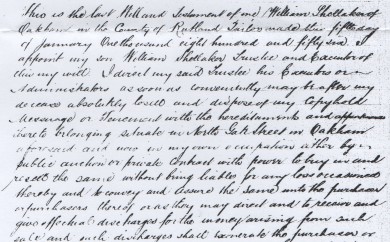 This is the last Will and Testament of me William Shellaker of
Oakham in the County of Rutland Tailor made this fifth day
of January One thousand eight hundred and fifty six. I
appoint my son William Shellaker Trustee and Executor of
this my will I direct my said Trustee his Executors or
Administrators as soon as conveniently may be after my
decease absolutely to sell and dispose of my Copyhold
Messuage or Tenement with the hereditaments and appurtenances
thereto belonging situate in North Gate Street in Oakham
aforesaid and now in my own occupation either by
public auction or private contract with power to buy in and
resell the same without being liable for any loss occasioned
thereby and to convey and assure the same unto the purchaser
or purchasers thereof or as they may direct and to receive and
give effectual discharges for the money arising from such
sale and such discharges shall exonerate the purchaser or